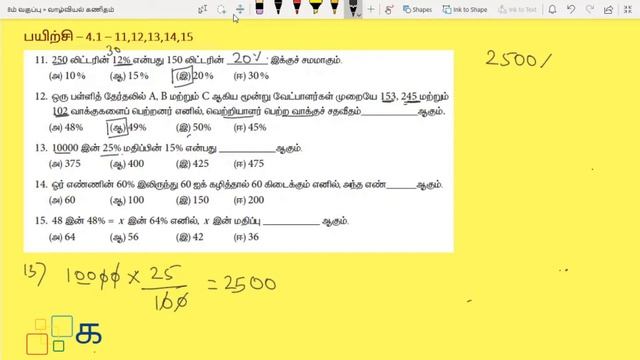 8ம் வகுப்பு - வாழ்வியல் கணிதம்
Shapes
Ink to Shape
Ink to Text
பயிற்சி – 4.1 – 11,12,13,14,15
30
11. 250 லிட்டரின் 12% என்பது 150 லிட்டரின் 20% இக்குச் சமமாகும்.
(அ) 10% (ஆ) 15% (இ) 20% (ஈ) 30%
12. ஒரு பள்ளித் தேர்தலில் A, B மற்றும் C ஆகிய மூன்று வேட்பாளர்கள் முறையே 153, 245 மற்றும்
102 வாக்குகளைப் பெற்றனர் எனில், வெற்றியாளர் பெற்ற வாக்குச் சதவீதம் ________ ஆகும்.
(அ) 48% (ஆ) 49% (இ) 50% (ஈ) 45%
13. 10000 இன் 25% மதிப்பின் 15% என்பது ________ ஆகும்.
(அ) 375 (ஆ) 400 (இ) 425 (ஈ) 475
14. ஓர் எண்ணின் 60% இலிருந்து 60 ஐக் கழித்தால் 60 கிடைக்கும் எனில், அந்த எண் ______ ஆகும்.
(அ) 60 (ஆ) 100 (இ) 150 (ஈ) 200
15. 48 இன் 48% = x இன் 64% எனில், x இன் மதிப்பு ________ ஆகும்.
(அ) 64 (ஆ) 56 (இ) 42 (ஈ) 36
2500
13) 10000 × 25/100 = 2500
க